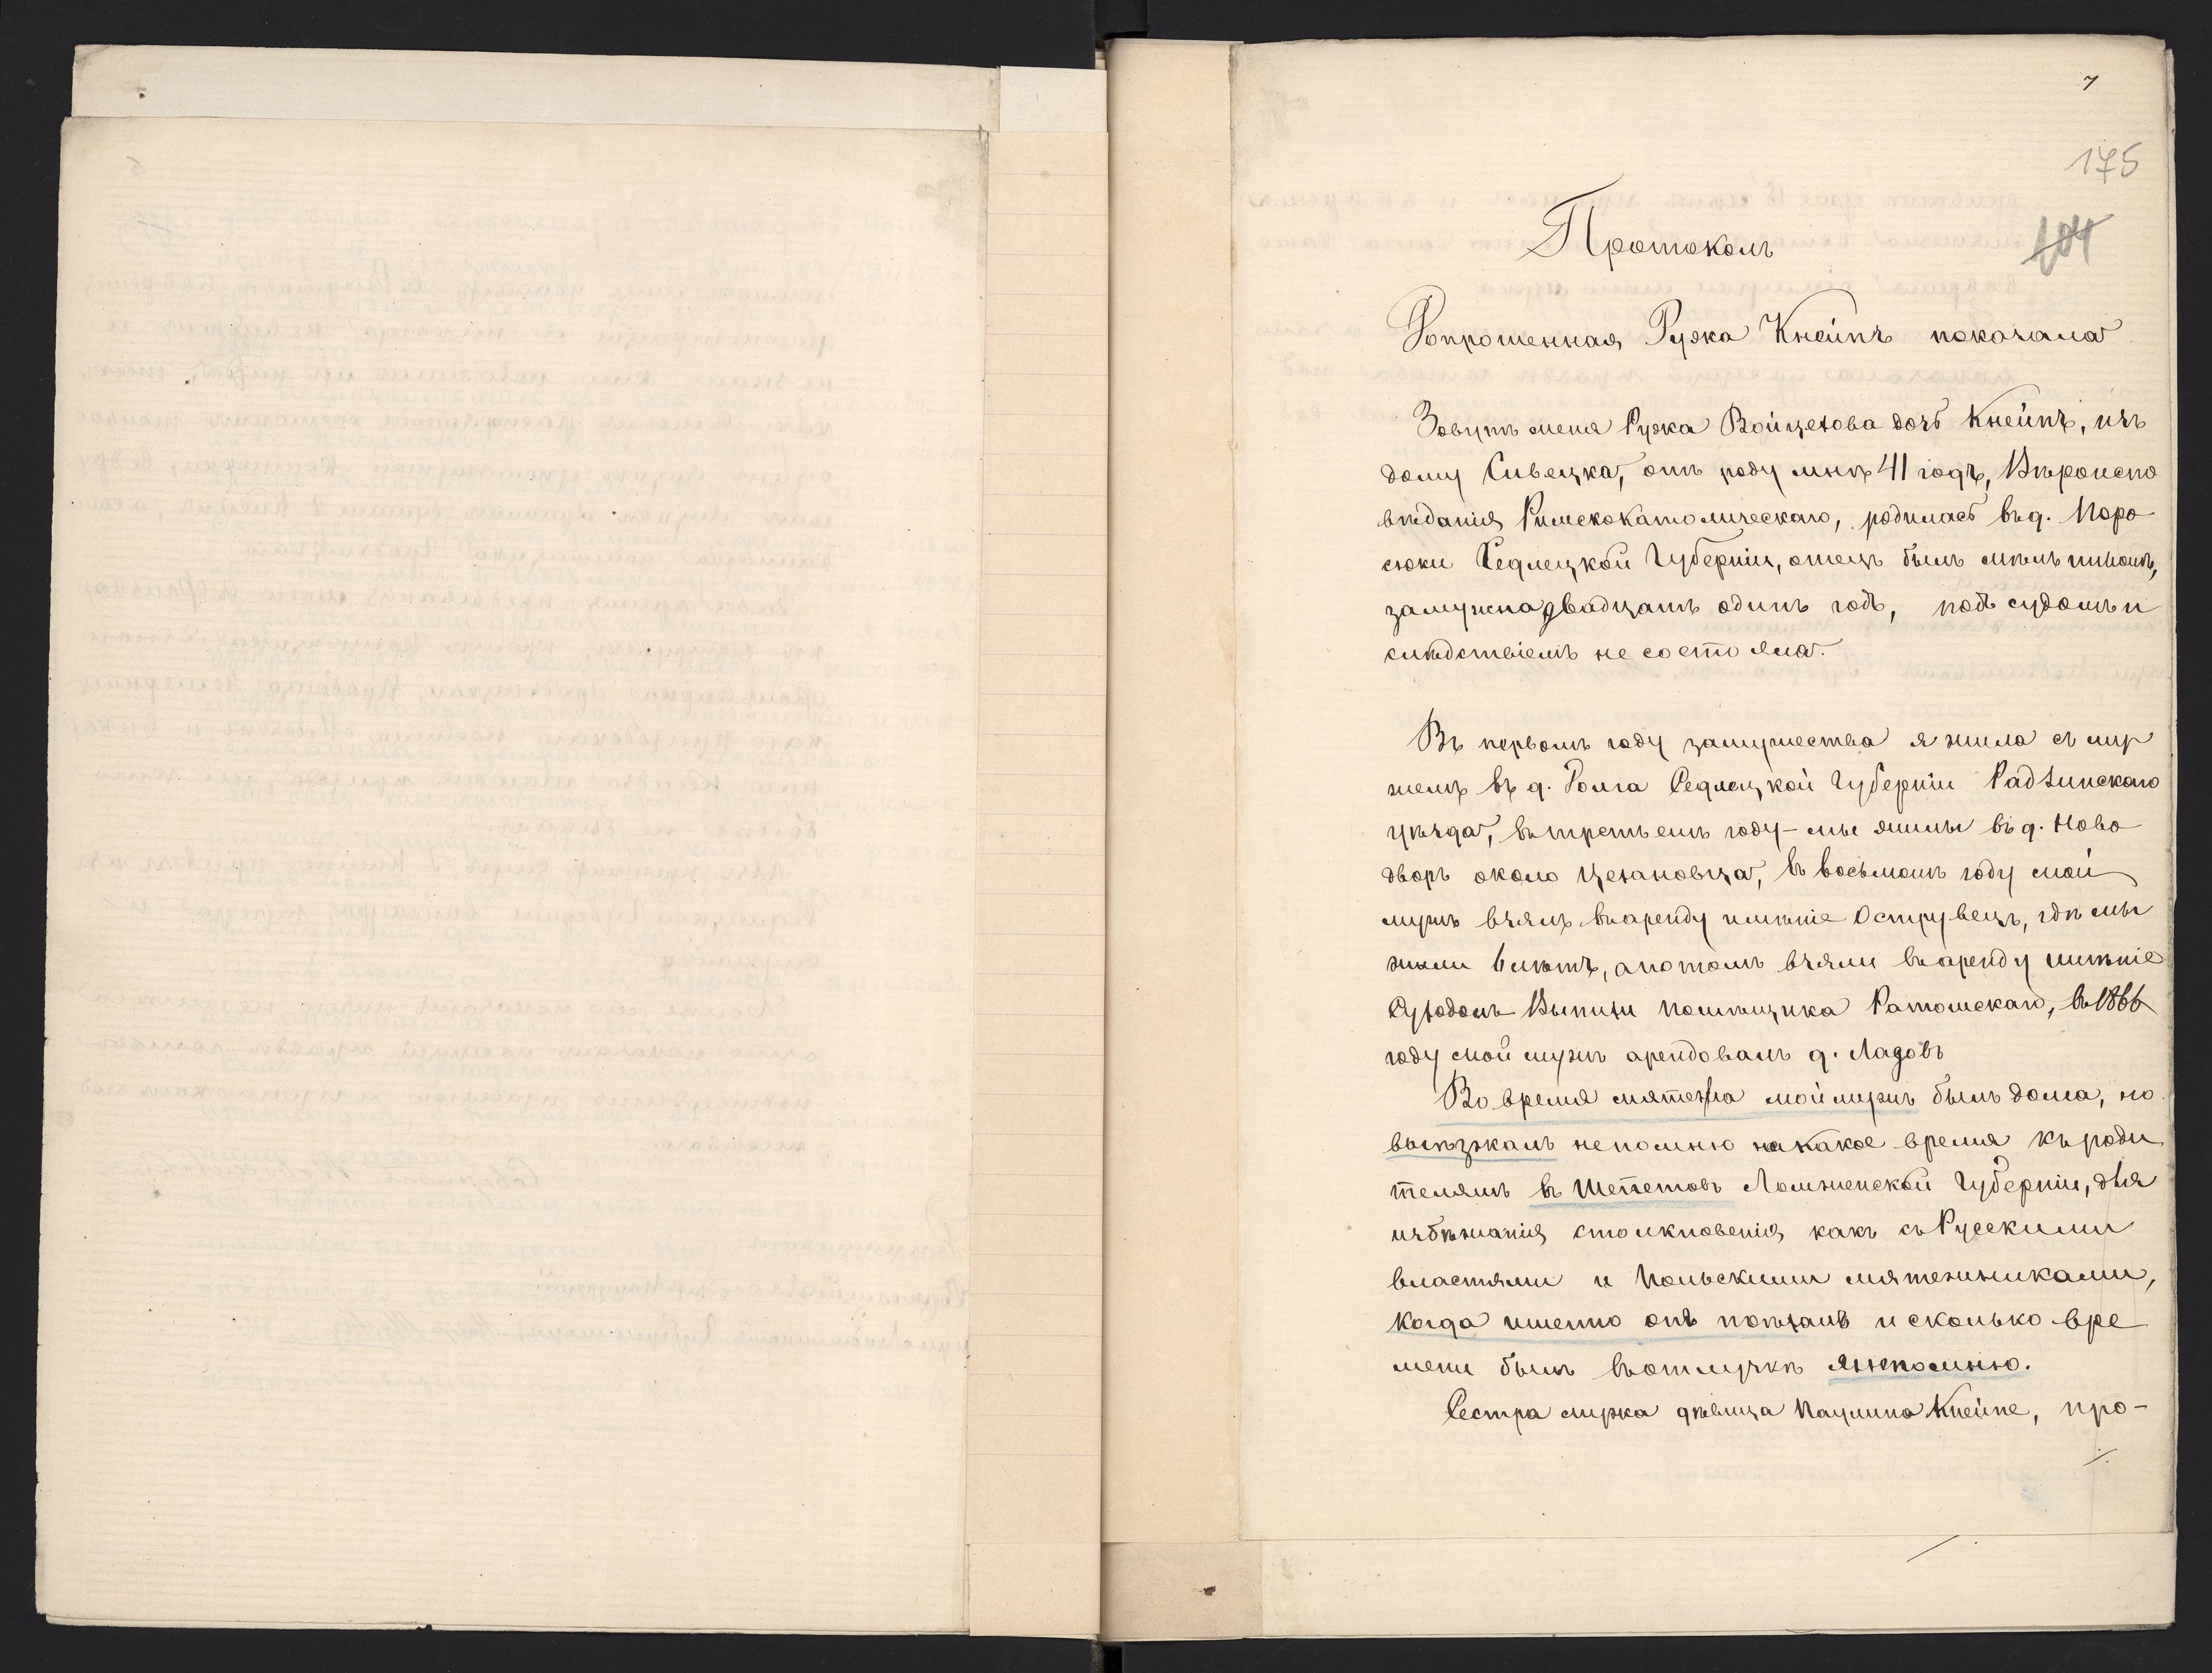 7
175
104
Протоколъ
Допрошенная Ружа Кнейпъ показала
Зовутъ меня Ружа Войцехова дочь Кнейпъ, изъ
дому Сивецка, отъ роду мнѣ 41 годъ, Вѣроиспо
вѣданія Римскокатолическаго, родилась въ д. Поро
сюки Седлецкой Губерніи, отецъ былъ
замужна двадцать одинъ годъ, подъ судомъ и
слѣдствіемъ не состояла.
Въ первомъ году замужества я жила съ му
жемъ въ д. Рользя Седлецкой Губерніи Радзинскаго
уѣзда, въ третьемъ году – мы жили въ д. Ново
дворъ около Цехановца, въ восьмомъ году мой
мужъ взялъ въ аренду имѣніе Острувецъ, гдѣ мы
жили 6 лѣтъ, а потомъ взяли въ аренду имѣніе
Суходолъ Выпихи помѣщика Ратомскаго, въ 1866
году мой мужъ арендовалъ д. Ладовъ
Во время мятежа мой мужъ былъ дома, но
выѣзжалъ не помню на какое время къ роди
телямъ въ Шепетовъ Ломженской Губерніи, для
избѣжанія столкновенія какъ съ Русскими
властями и Польскими мятежниками,
когда именно онъ поѣхалъ и сколько вре
мени былъ въ отлучкѣ я не помню.
Сестра мужа дѣвица Паулина Кнейпе, про-